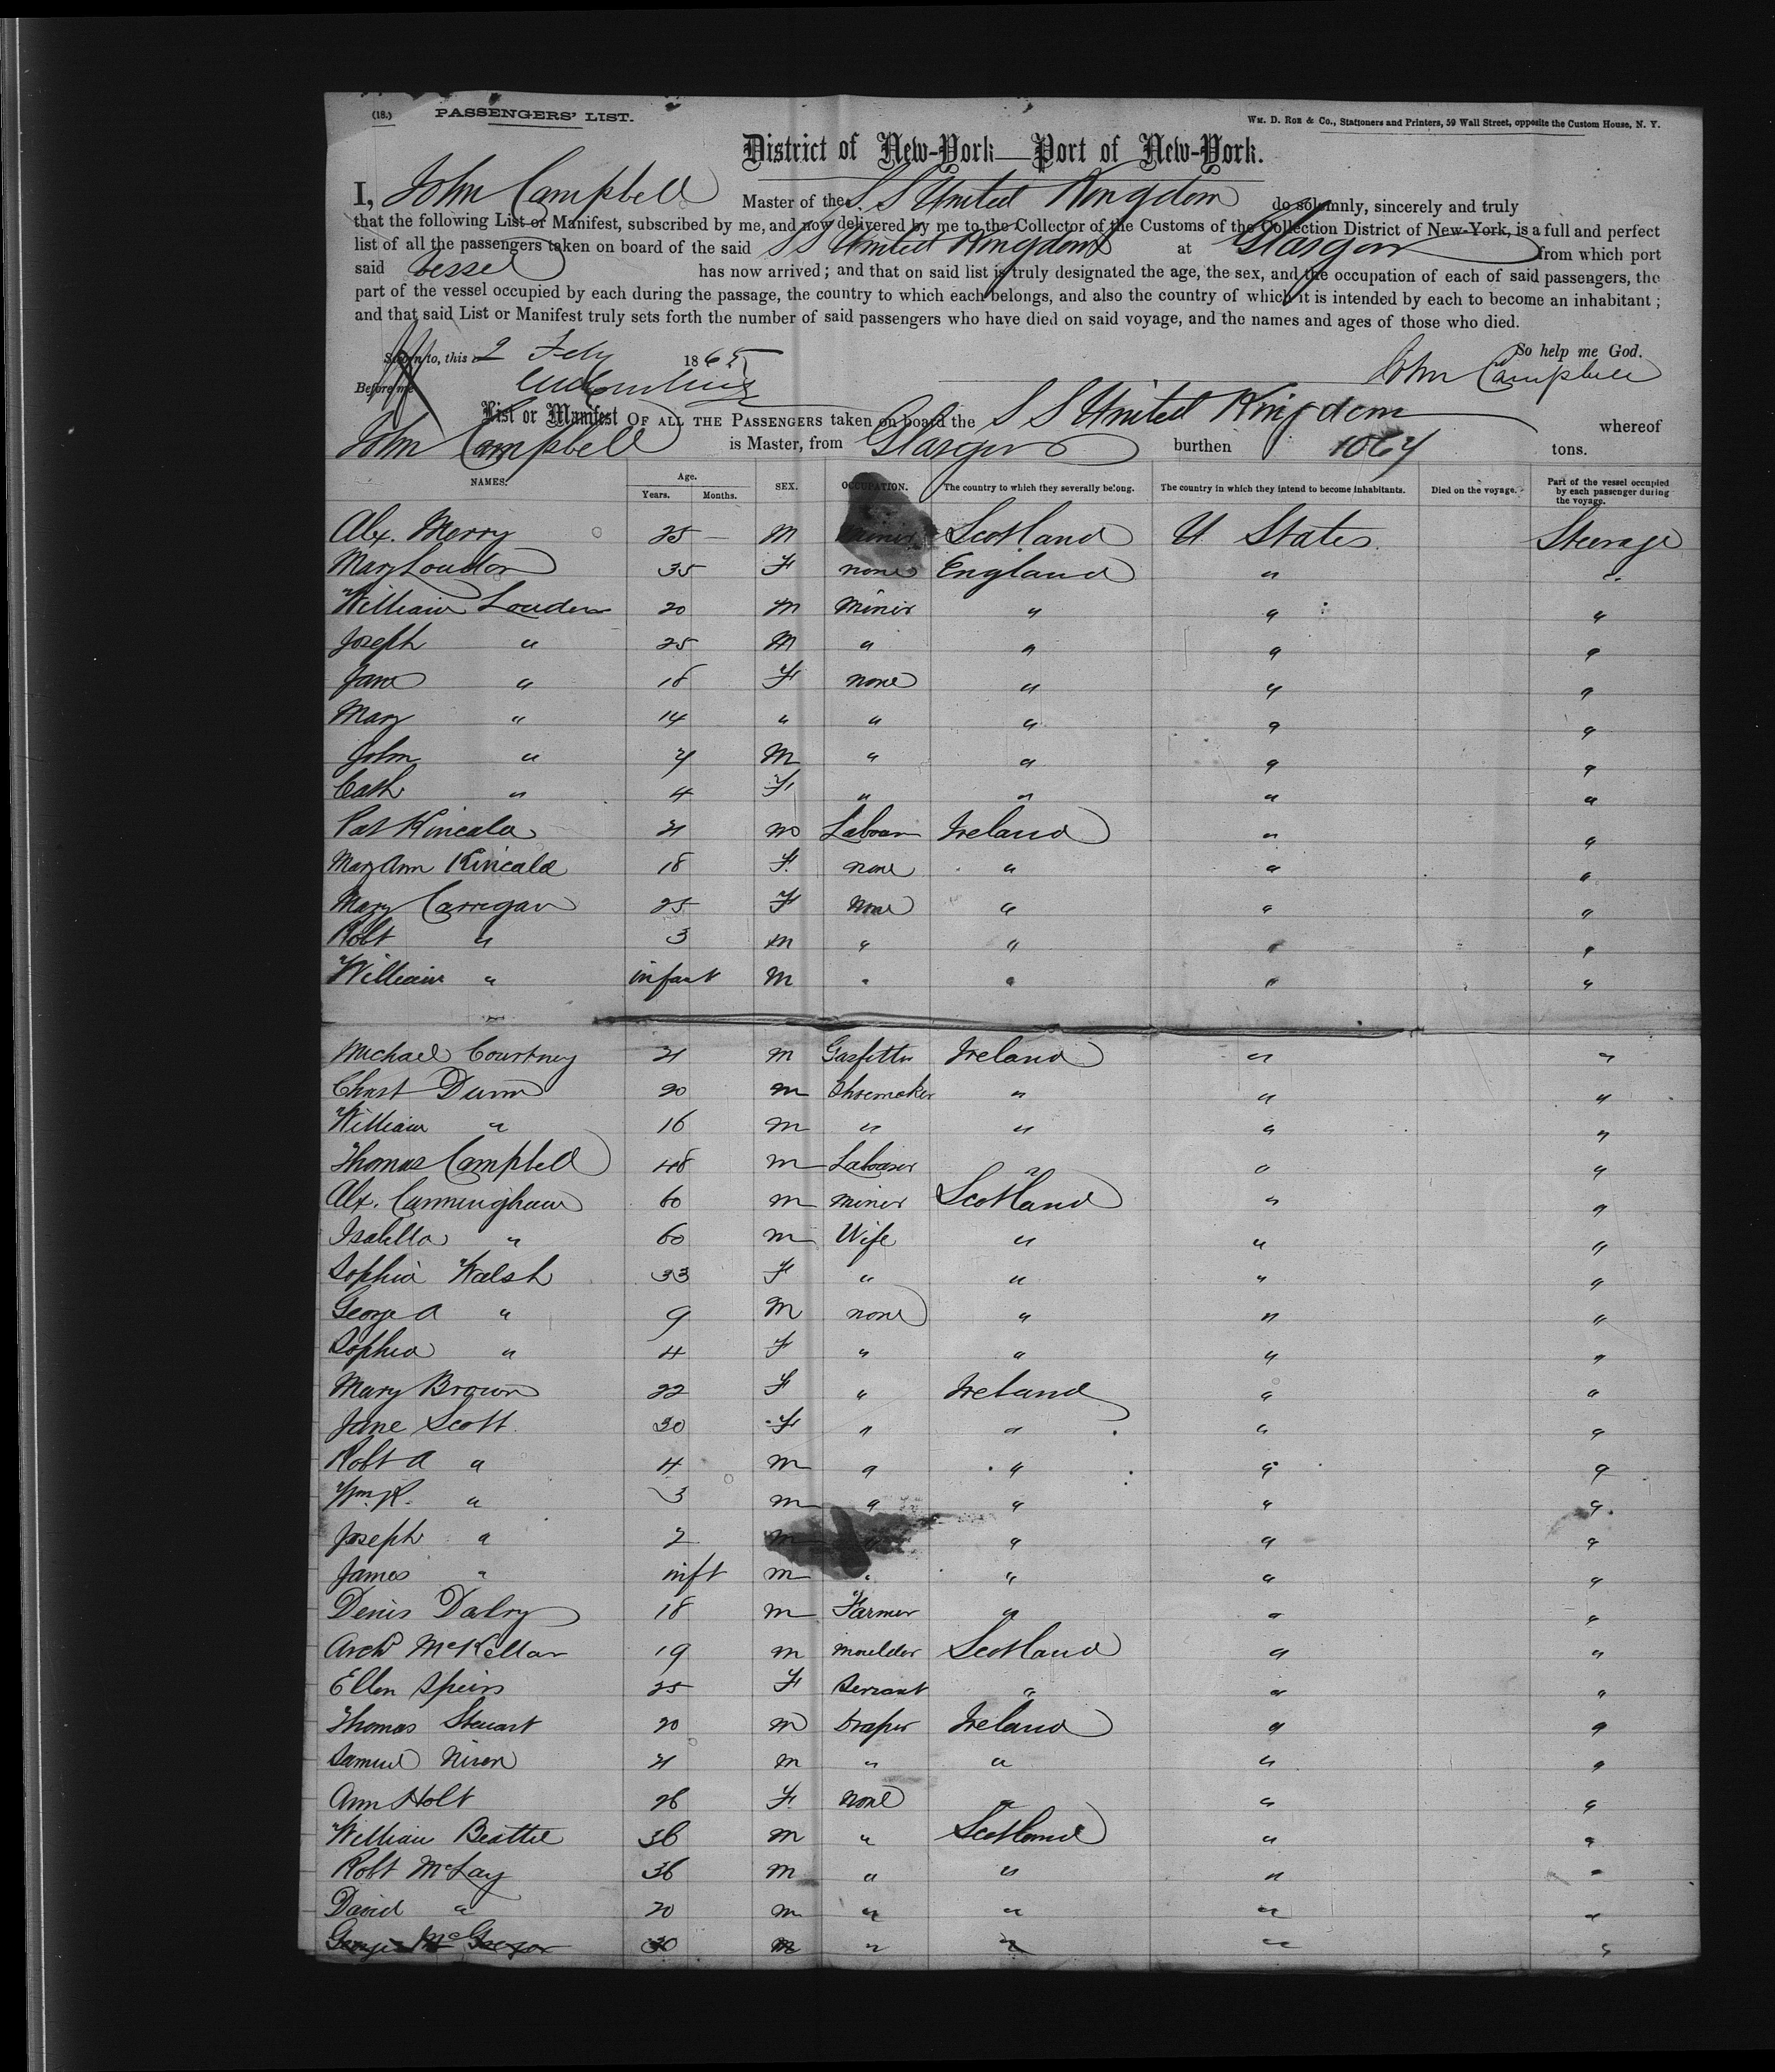 (18.) PASSENGERS' LIST. Wm. D. Roe & Co., Stationers and Printers, 59 Wall Street, opposite the Custom House, N. Y.
District of New-York—Port of New-York.
I, John Campbell Master of the S. S United Kingdom do solemnly, sincerely and truly
that the following List or Manifest, subscribed by me, and now delivered by me to the Collector of the Customs of the Collection District of New-York, is a full and perfect
list of all the passengers taken on board of the said S S United Kingdom at Glasgow from which port
said Vessel has now arrived; and that on said list is truly designated the age, the sex, and the occupation of each of said passengers, the
part of the vessel occupied by each during the passage, the country to which each belongs, and also the country of which it is intended by each to become an inhabitant;
and that said List or Manifest truly sets forth the number of said passengers who have died on said voyage, and the names and ages of those who died.
So help me God.
Sworn to, this 2 Feby 1865 John Campbell
Before me
List or Manifest OF ALL THE PASSENGERS taken on board the S S United Kingdom whereof
John Campbell is Master, from Glasgow burthen 1067 tons.
NAMES. Age. Years. Months. SEX. OCCUPATION. The country to which they severally belong. The country in which they intend to become inhabitants. Died on the voyage. Part of the vessel occupied by each passenger during the voyage.
Alex. Merry 25 — M Minir Scotland U States Steerage
Mary Loudon 35 F none England " "
William Louden 20 M Minir " " "
Joseph " 25 M " " " "
Jane " 18 F none " " "
Mary " 14 " " " " "
John " 7 M " " " "
Cath " 4 F " " " "
Pat Kincala 21 M Labour Ireland " "
Mary Ann Kincala 18 F. none " " "
Mary Carrigan 25 F None " " "
Robt " 3 M " " " "
William " infant M " " " "
Michael Courtney 21 M Gasfitter Ireland " "
Chast Dunn 20 M Shoemaker " " "
William " 16 M " " " "
Thomas Campbell 48 M Labourer " " "
Alex. Cunningham 60 M Miner Scotland " "
Isabella " 60 M Wife " " "
Sophia Walsh 33 F " " " "
George A " 9 M none " " "
Sophia " 4 F " " " "
Mary Brown 22 F " Ireland " "
Jane Scott 30 F " " " "
Robt A " 4 M " " " "
Wm. R. " 3 M " " " "
Joseph " 2 M " " " "
James " inft M " " " "
Denis Dalry 18 M Farmer " " "
Archd McKellar 19 M Moulder Scotland " "
Ellen Speirs 25 F Servant " " "
Thomas Stewart 20 M Draper Ireland " "
Samuel Niven 21 M " " " "
Ann Holt 26 F. None " " "
William Beattie 36 M " Scotland " "
Robt McLay 36 M " " " "
David " 20 M " " " "
George McGregor 30 M " " " "